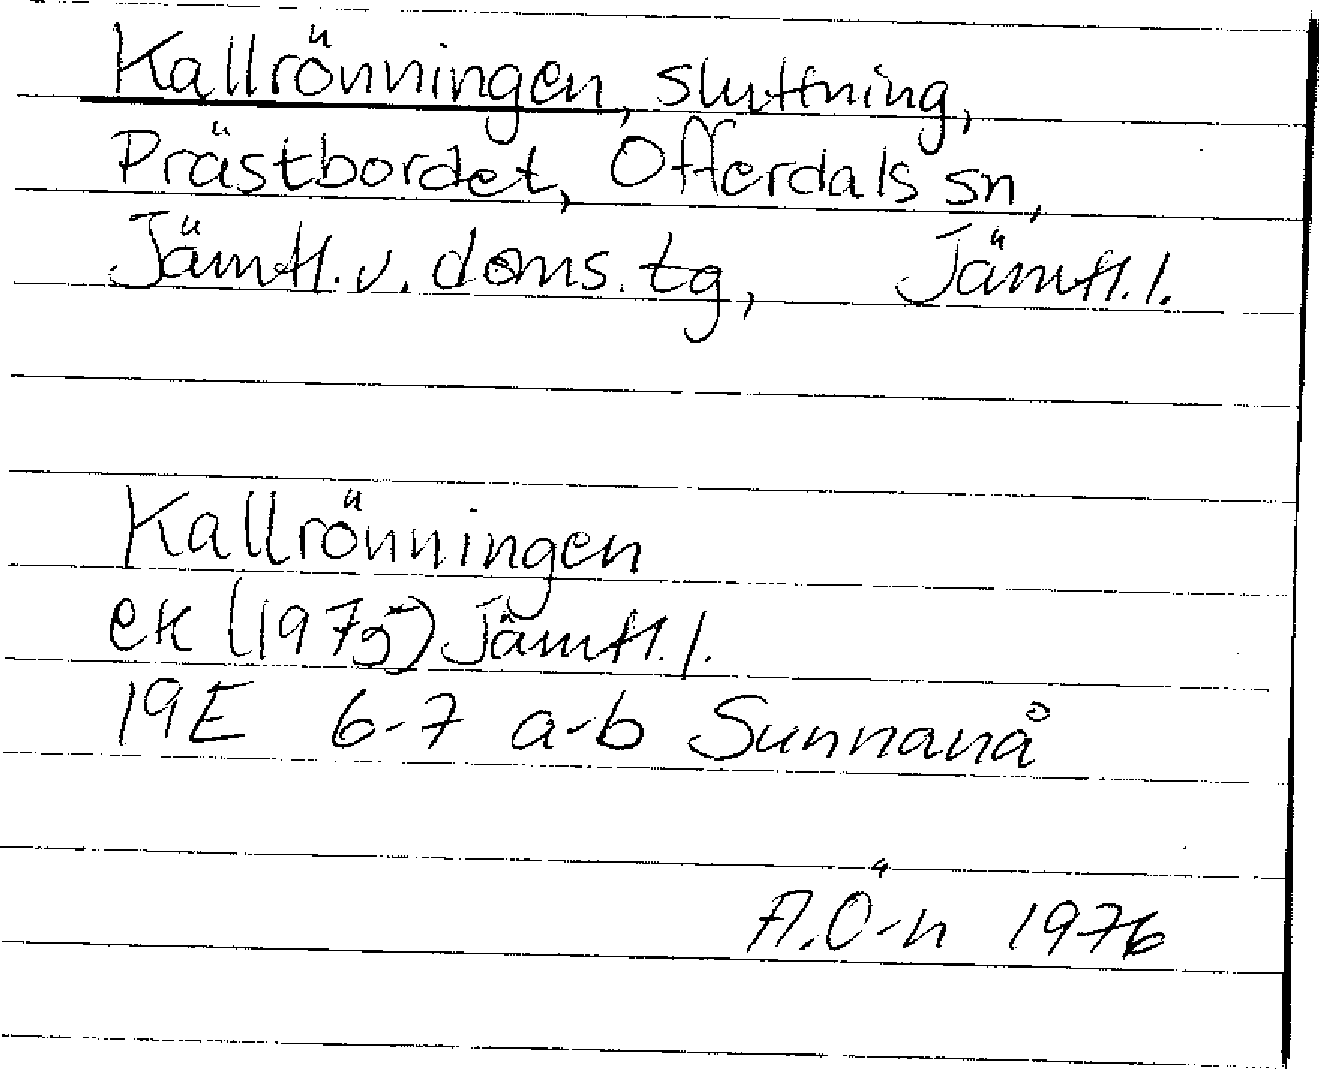 Kallrönningen, sluttning,
Prästbordet, Offerdals sn,
Jämtl. v. doms. tg, Jämtl. l.
Kallrönningen
ek (1975) Jämtl. l.
19E 6-7 a-b Sunnanå
A.Ö-n 1976